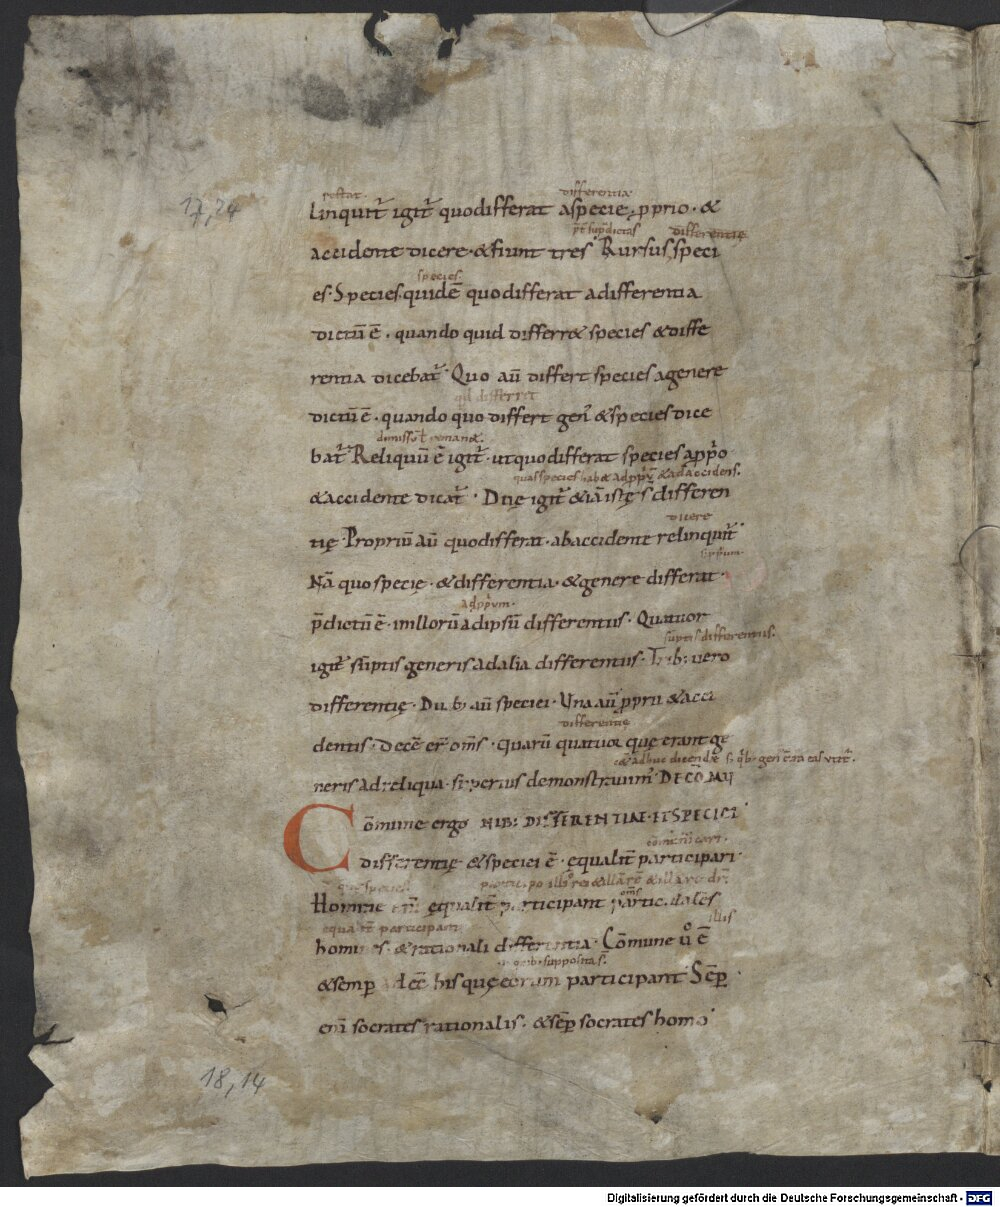 restat. differentia
linquit᷑ igit᷑ quo differat a specie, pprio · &
pt sup̄dictas differentię
accidente dicere · & fiunt tres Rursus, speci
species.
es · Species quidē quo differat a differentia
dictū ē · quando quid differr& species & diffe
rentia dicebat᷑ · Quo aū differt species a genere
qd differret
dictū ē · quando quo differt gen᷑ & species dice
bat᷑ Reliquū ē igit᷑ · ut quo differat species a pp̄o
quas species hab& ad pp̄ū & ad accidens.
& accidente dicat᷑ · Duę igit᷑ & iā istę s̄ differen
dicere
tię · Propriū aū quo differat · ab accidente relinquit᷑
Nā quo specie · & differentia · & genere differat ·
ad pp̄ium ·
p̄dictū ē · in illorū ad ipsū differentiis · Quatuor
sūptis differentiis.
igit᷑ sūptis generis ad alia differentiis · Trib; vero
differentię · Duab; aū speciei · Una aū pprii & acci
differentię
dentis · Decē er̄ om̄s · quarū quatuor quę erant ge
neris ad reliqua · superius demonstravim᷑ · DE CŌMU
Cōmune ergo NIB; DIFFERENTIAE · ET SPECIEI
differentię & speciei ē · equalit᷑ participari ·
que species.
Homine eni equalit᷑ participant particulares
equalit᷑ participant illis
homines · & rationali differentia · Cōmune ů ē
suppositas.
& semp adeē his quę eorum participant Sēp
eni socrates rationalis · & sēp socrates homo
17,24
18,14
Digitalisierung gefördert durch die Deutsche Forschungsgemeinschaft - DFG